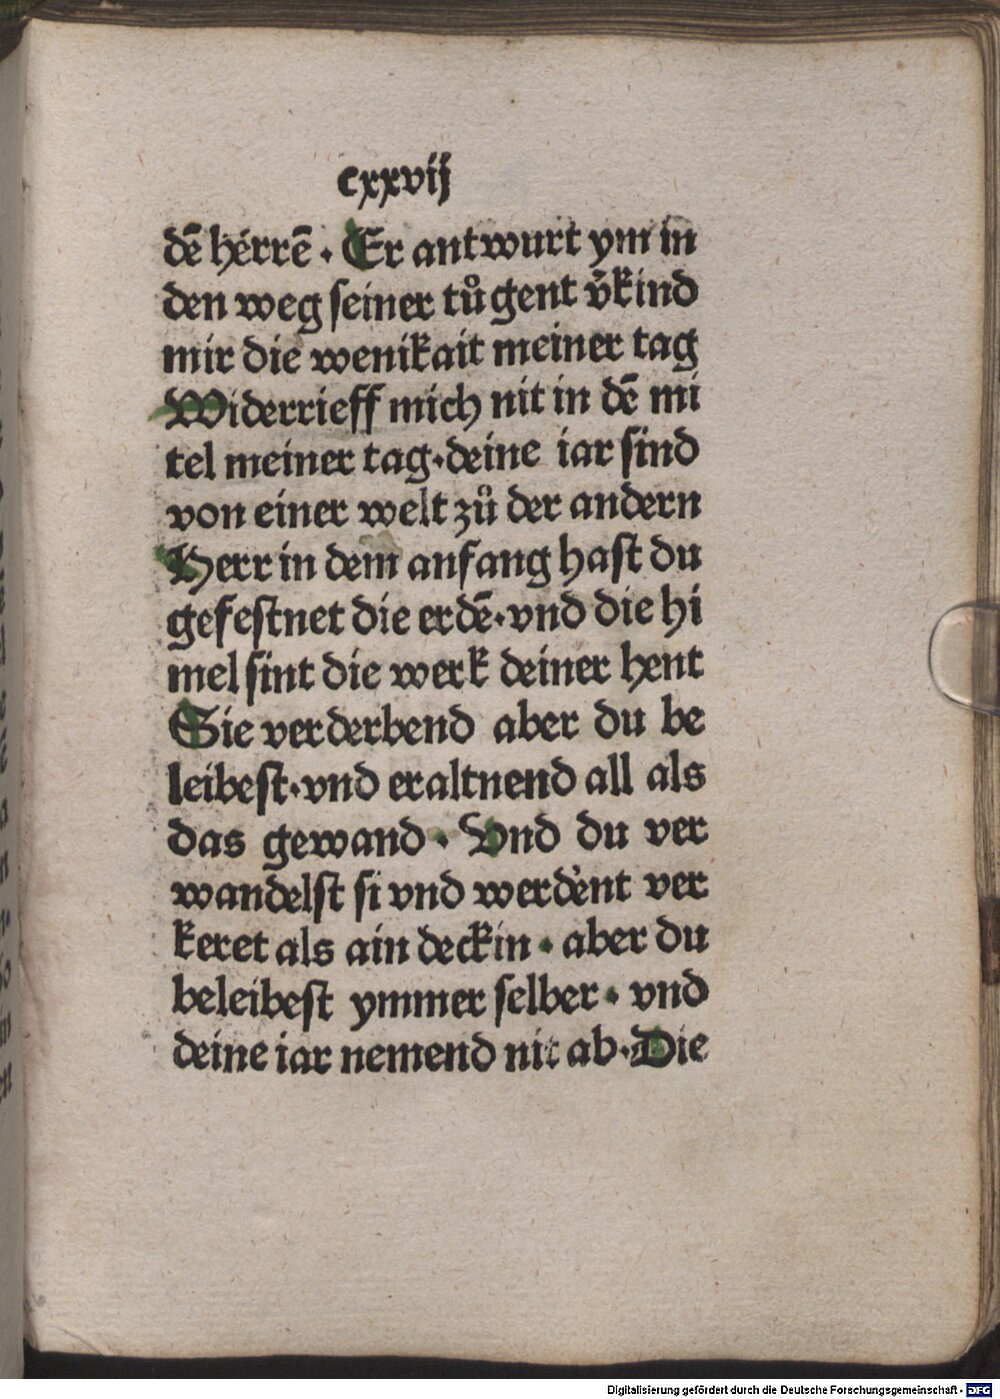 cxxvij
dē hérrē · Er antwurt ym in
den weg seiner tůgent v̄kind
mir die wenikait meiner tag
Widerrieff mich nit in dē mi
tel meiner tag·deine iar sind
von einer welt zů der andern
Herr in dem anfang hast du
gefestnet die erdē·vnd die hi
mel sint die werk deiner hent
Sie verderbend aber du be
leibest·vnd eraltnend all als
das gewand · Vnd du ver
wandelst si vnd werdent ver
keret als ain deckin · aber du
beleibest ymmer selber · vnd
deine iar nemend nit ab·Die
Digitalisierung gefördert durch die Deutsche Forschungsgemeinschaft - DFG